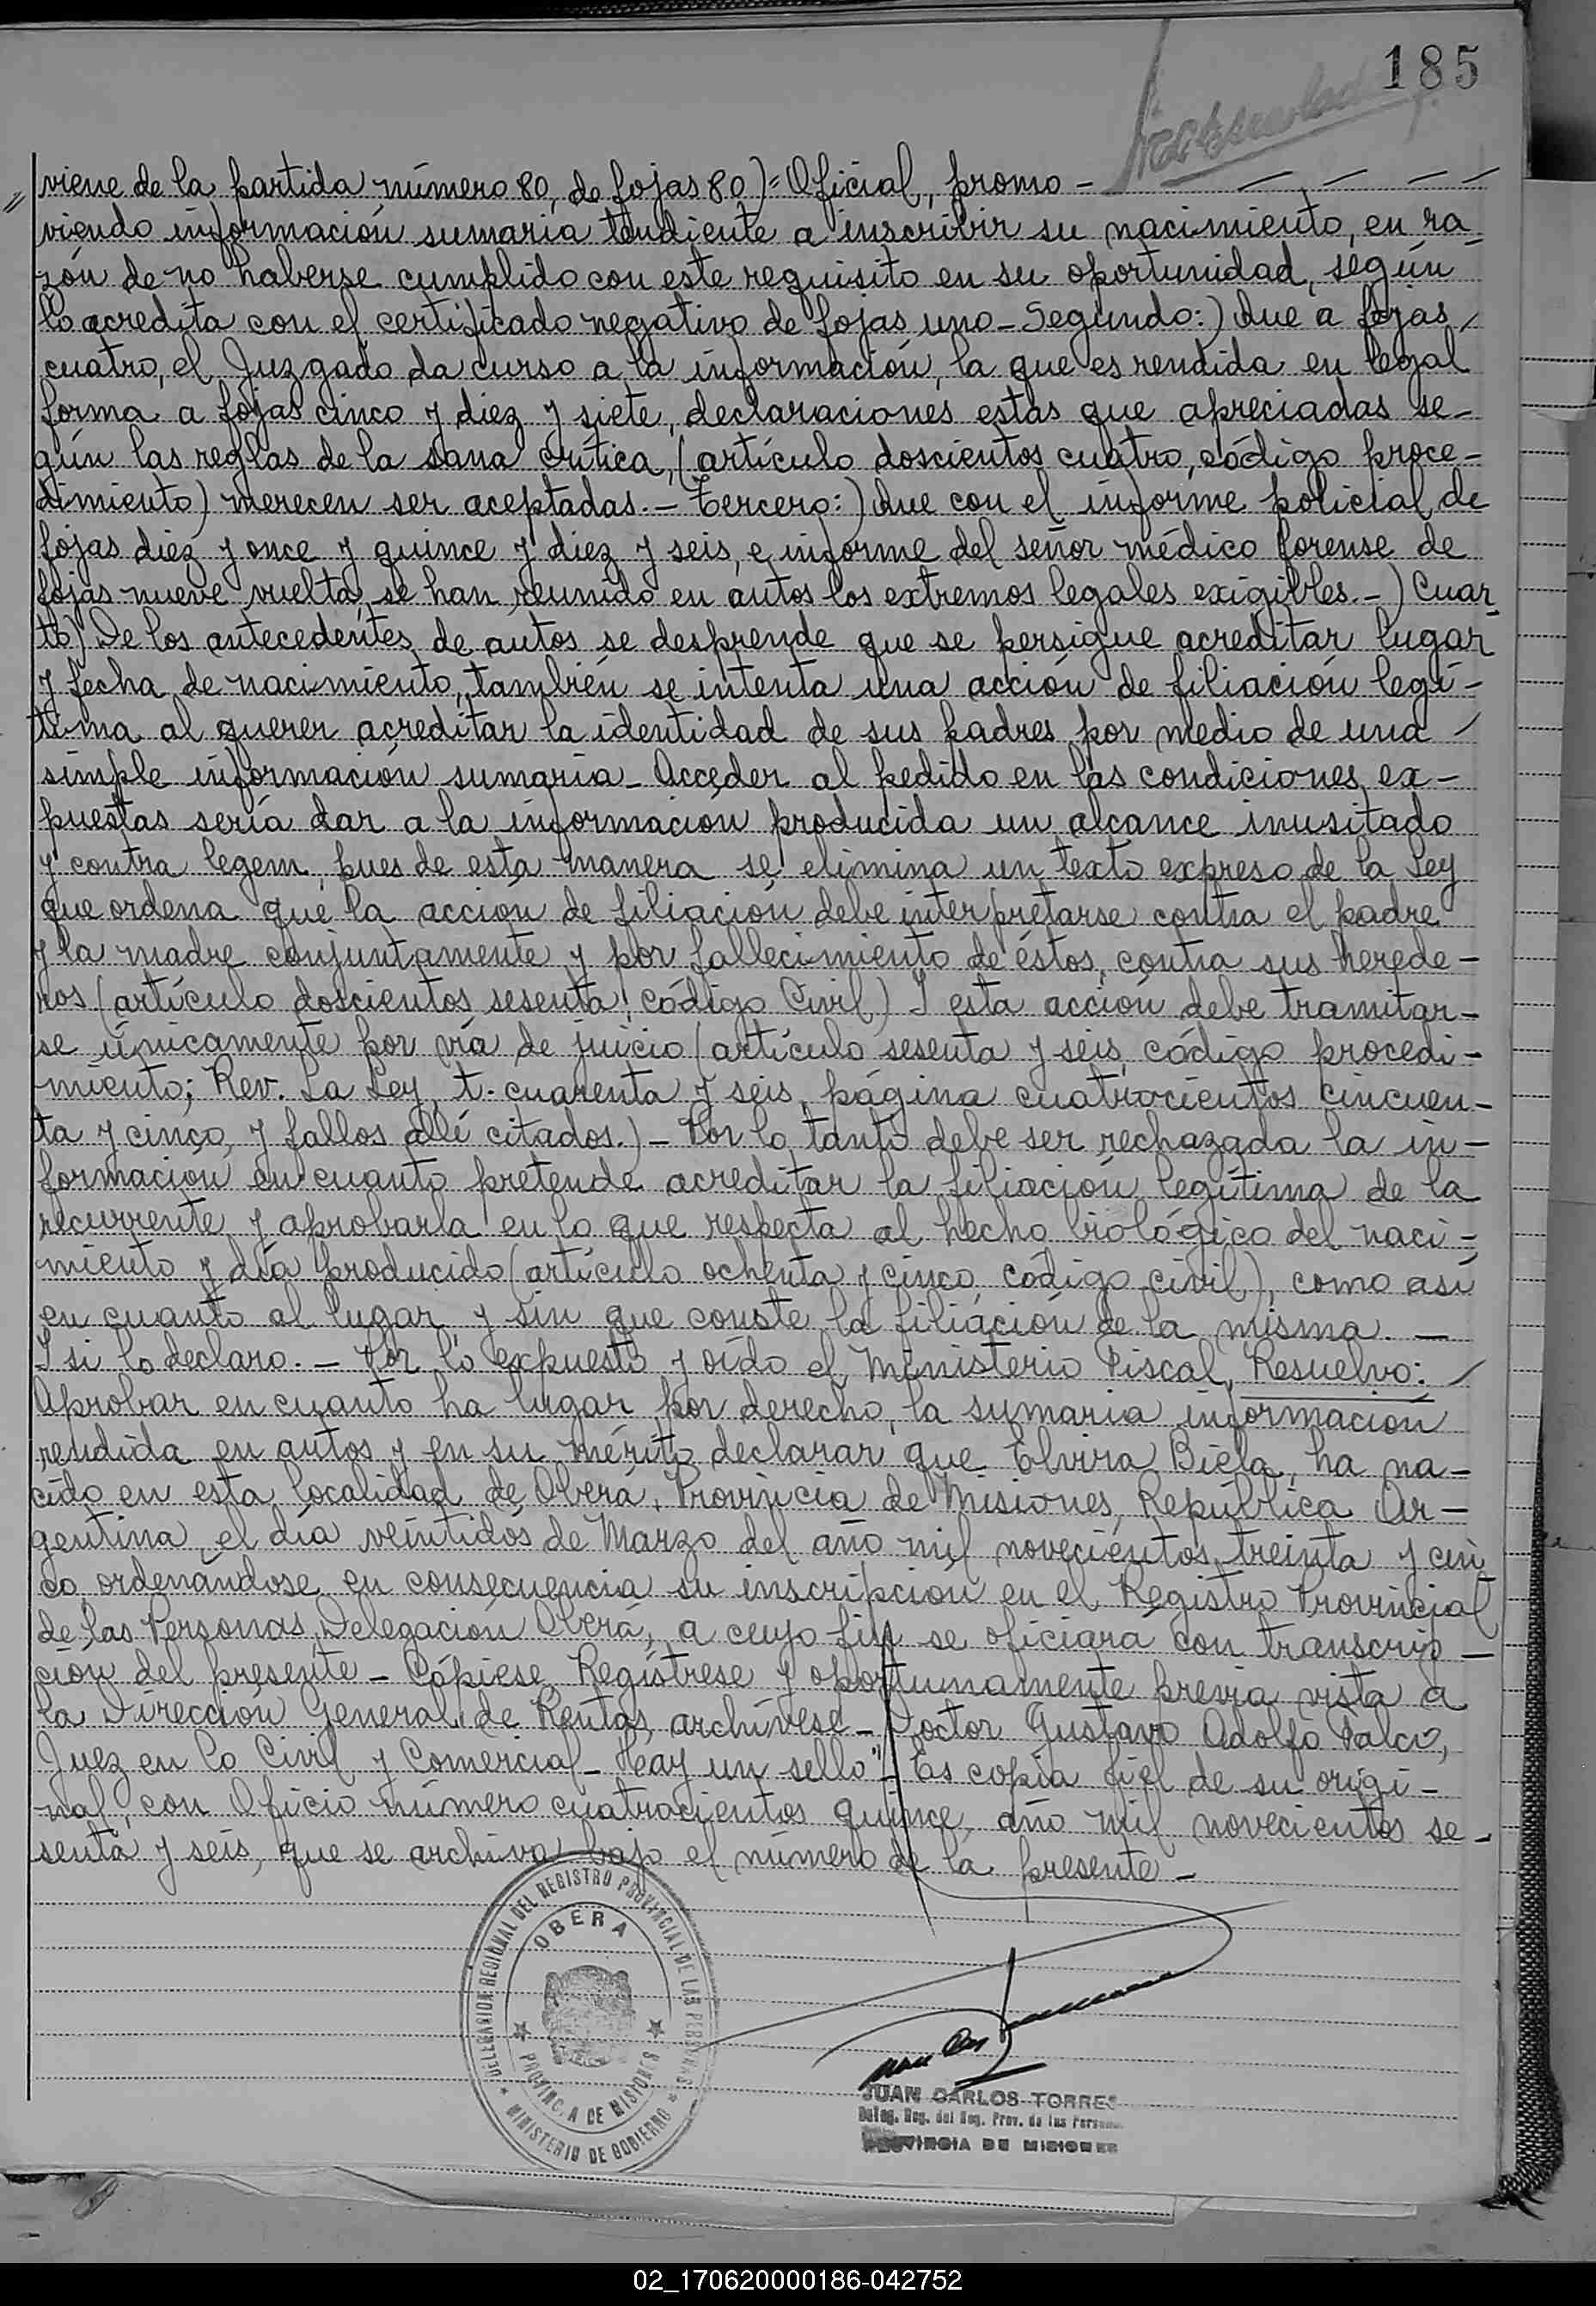 185
viene de la partida número 80, de fojas 80)= Oficial, promo-
viendo información sumaria tendiente a inscribir su nacimiento, en ra-
zón de no haberse cumplido con este requisito en su oportunidad, según
lo acredita con el certificado negativo de fojas uno_ Segundo:) Que a fojas
cuatro, el Juzgado da curso a la información, la que es rendida en legal
forma a fojas cinco y diez y siete, declaraciones estas que apreciadas se-
gún las reglas de la sana crítica, (artículo doscientos cuatro, código proce-
dimiento) merecen ser aceptadas.- Tercero:) Que con el informe policial de
fojas diez y once y quince y diez y seis, e informe del señor médico forense de
fojas nueve vuelta, se han reunido en autos los extremos legales exigibles.-) Cuar-
to) De los antecedentes de autos se desprende que se persigue acreditar lugar
y fecha de nacimiento, también se intenta una acción de filiación legí-
tima al querer acreditar la identidad de sus padres por medio de una
simple información sumaria_ Acceder al pedido en las condiciones ex-
puestas sería dar a la información producida un alcance inusitado
y contra legem, pues de esta manera se elimina un texto expreso de la Ley
que ordena que la acción de filiación debe interpretarse contra el padre
y la madre conjuntamente y por fallecimiento de éstos, contra sus herede-
ros (artículo doscientos sesenta, código Civil) I esta acción debe tramitar-
se únicamente por vía de juicio (artículo sesenta y seis, código procedi-
miento; Rev. La Ley, t. cuarenta y seis, página cuatrocientos cincuen-
ta y cinco, y fallos allí citados.)- Por lo tanto debe ser rechazada la in-
formación en cuanto pretende acreditar la filiación legítima de la
recurrente y aprobarla en lo que respecta al hecho biológico del naci-
miento y día producido (artículo ochenta y cinco, código civil), como así
en cuanto al lugar y sin que conste la filiación de la misma.-
I si lo declaro.- Por lo expuesto y oído el Ministerio Fiscal, Resuelvo:
Aprobar en cuanto ha lugar por derecho, la sumaria información
rendida en autos y en su mérito declarar que Elvira Biela, ha na-
cido en esta localidad de Oberá, Provincia de Misiones, República Ar-
gentina, el día veintidós de Marzo del año mil novecientos treinta y cin
co, ordenándose en consecuencia su inscripción en el Registro Provincial
de las Personas, Delegación Oberá, a cuyo fin se oficiará con transcrip-
ción del presente_ Cópiese, Regístrese y oportunamente previa vista a
la Dirección General de Rentas, archívese_ Doctor Gustavo Adolfo
Juez en lo Civil y Comercial_ Hay un sello"_ Es copia fiel de su origi-
nal, con Oficio número cuatrocientos quince, año mil novecientos se-
senta y seis, que se archiva bajo el número de la presente_
DELEGACION REGIONAL DEL REGISTRO PROVINCIAL DE LAS PERSONAS
OBERA
PROVINCIA DE MISIONES
MINISTERIO DE GOBIERNO
JUAN CARLOS TORRES
Deleg. Reg. del Reg. Prov. de las Personas
PROVINCIA DE MISIONES
02_170620000186-042752